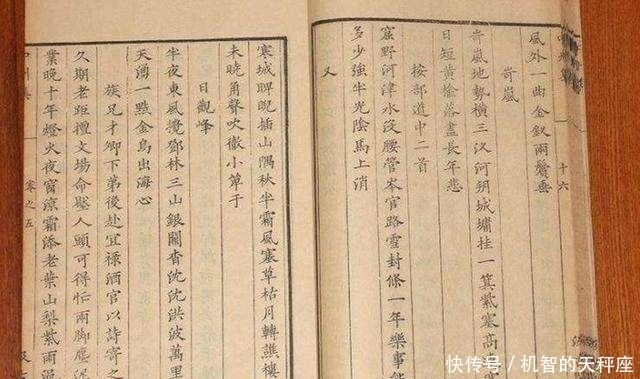 十六
風外一曲金釵兩鬢垂
岢嵐
岢嵐地勢橫三汊河朔城墉挂一箕紫塞高
日短黃榆落盡長年悲
按部道中二首
窟野河津水沒腰管岑官路雪封條一年樂事能
多少強半光陰馬上消
又
寒城睥睨插山隅秋半霜風塞草枯月轉譙樓
未曉角聲吹徹小單于
日觀峰
半夜東風攪鄧林三山銀闕杳沈沈洪波萬里
天湧一點金烏出海心
族兄才卿下第後赴宜祿酒官以詩寄之
久期老距擅文場命壓人頭可得怯雨腳塵
業晚十年燈火夜窗涼霜添老葉山梨紫雨
卷之五
快传号/机智的天秤座